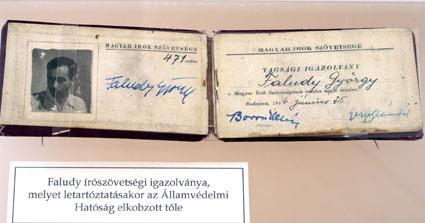 MAGYAR IRÓK SZÖVETSÉGE
471
szám
Faludy György
MAGYAR IRÓK SZÖVETSÉGE
TAGSÁGI IGAZOLVÁNY
Faludy György
a Magyar Írók Szövetségének rendes tagja részére.
Budapest, 1946 június 25
Faludy írószövetségi igazolványa,
melyet letartóztatásakor az Államvédelmi
Hatóság elkobzott tőle